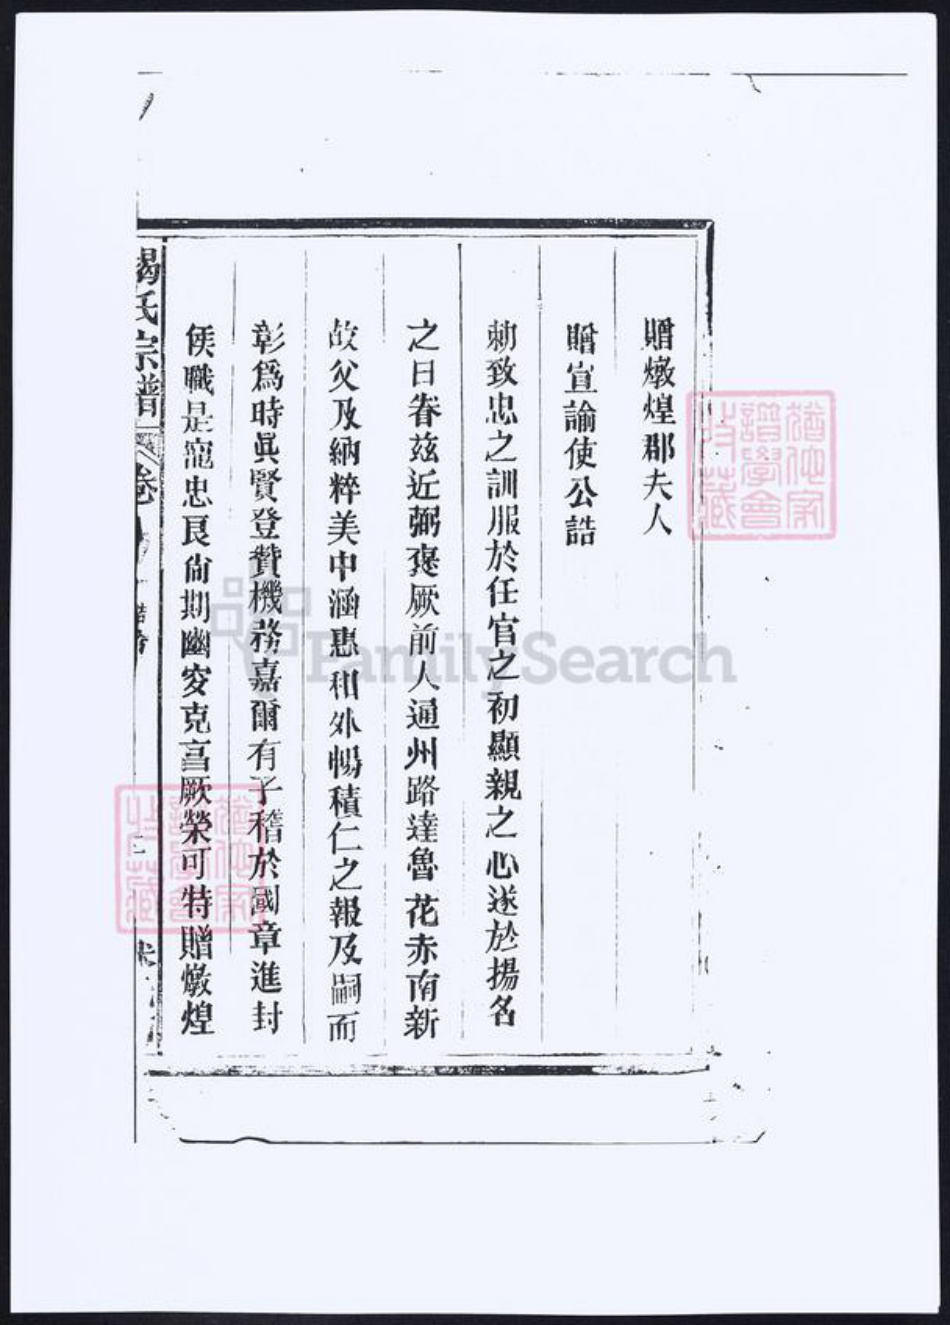 贈燉煌郡夫人
贈宣諭使公誥
勑致忠之訓服於任官之初顯親之心遂於揚名
之日眷兹近弼褒厥前人通州路達魯花赤南新
故父及納粹美中涵惠和外暢積仁之報及嗣而
彰爲時眞賢登贊機務嘉爾有子稽於國章進封
侯職是寵忠良尙期幽穸克啻厥榮可特贈燉煌
氏宗譜
卷
譜學會
收藏
譜學會
收藏
FamilySearch